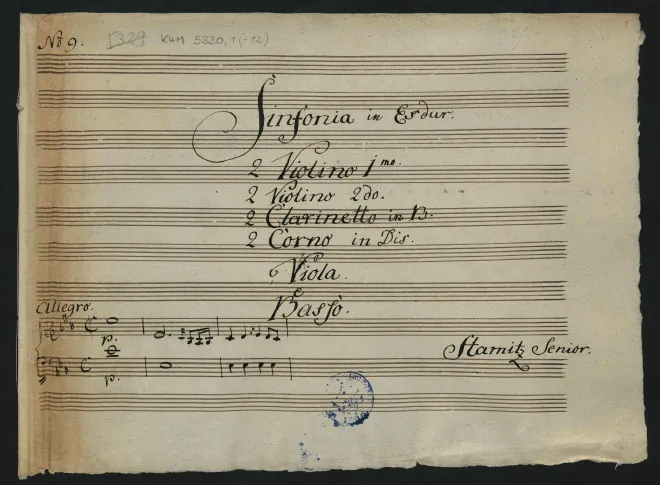 No 9.
5329 KHM 5330,1(-12)
Sinfonia in Es dur.
2 Violino 1mo.
2 Violino 2do.
2 Clarinetto in B.
2 Corno in Dis.
Viola.
Basso.
Allegro.
p.
Stamitz Senior.
p.